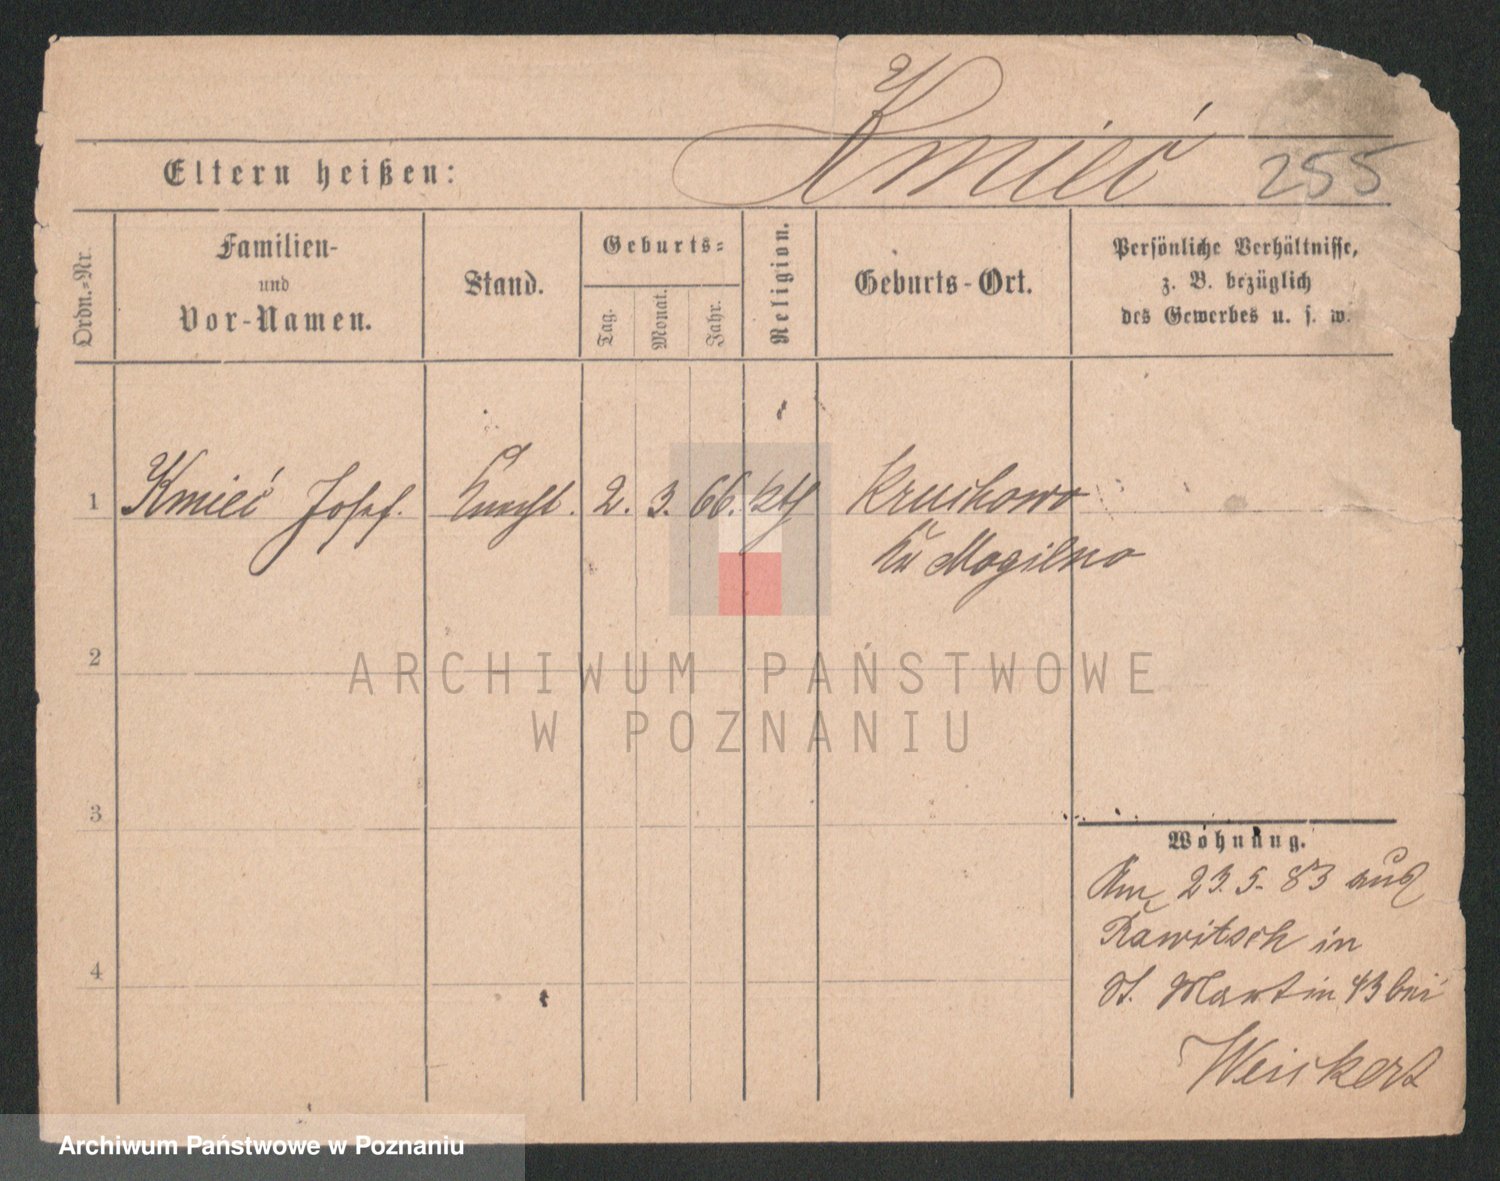 Kmieć
Eltern heißen:
255
Ordn.-Nr.
Familien-
und
Vor-Namen.
Stand.
Geburts-
Tag.
Monat.
Jahr.
Religion.
Geburts-Ort.
Persönliche Verhältnisse,
z. B. bezüglich
des Gewerbes u. s. w.
1 Kmieć Josef. Knecht. 2. 3. 66. kth Kruchowo
Kr Mogilno
2
3
4
Wohnung.
Am 23.5.83 aus
Rawitsch in
St. Martin 43 bei
Weickert
ARCHIWUM PAŃSTWOWE
W POZNANIU
Archiwum Państwowe w Poznaniu